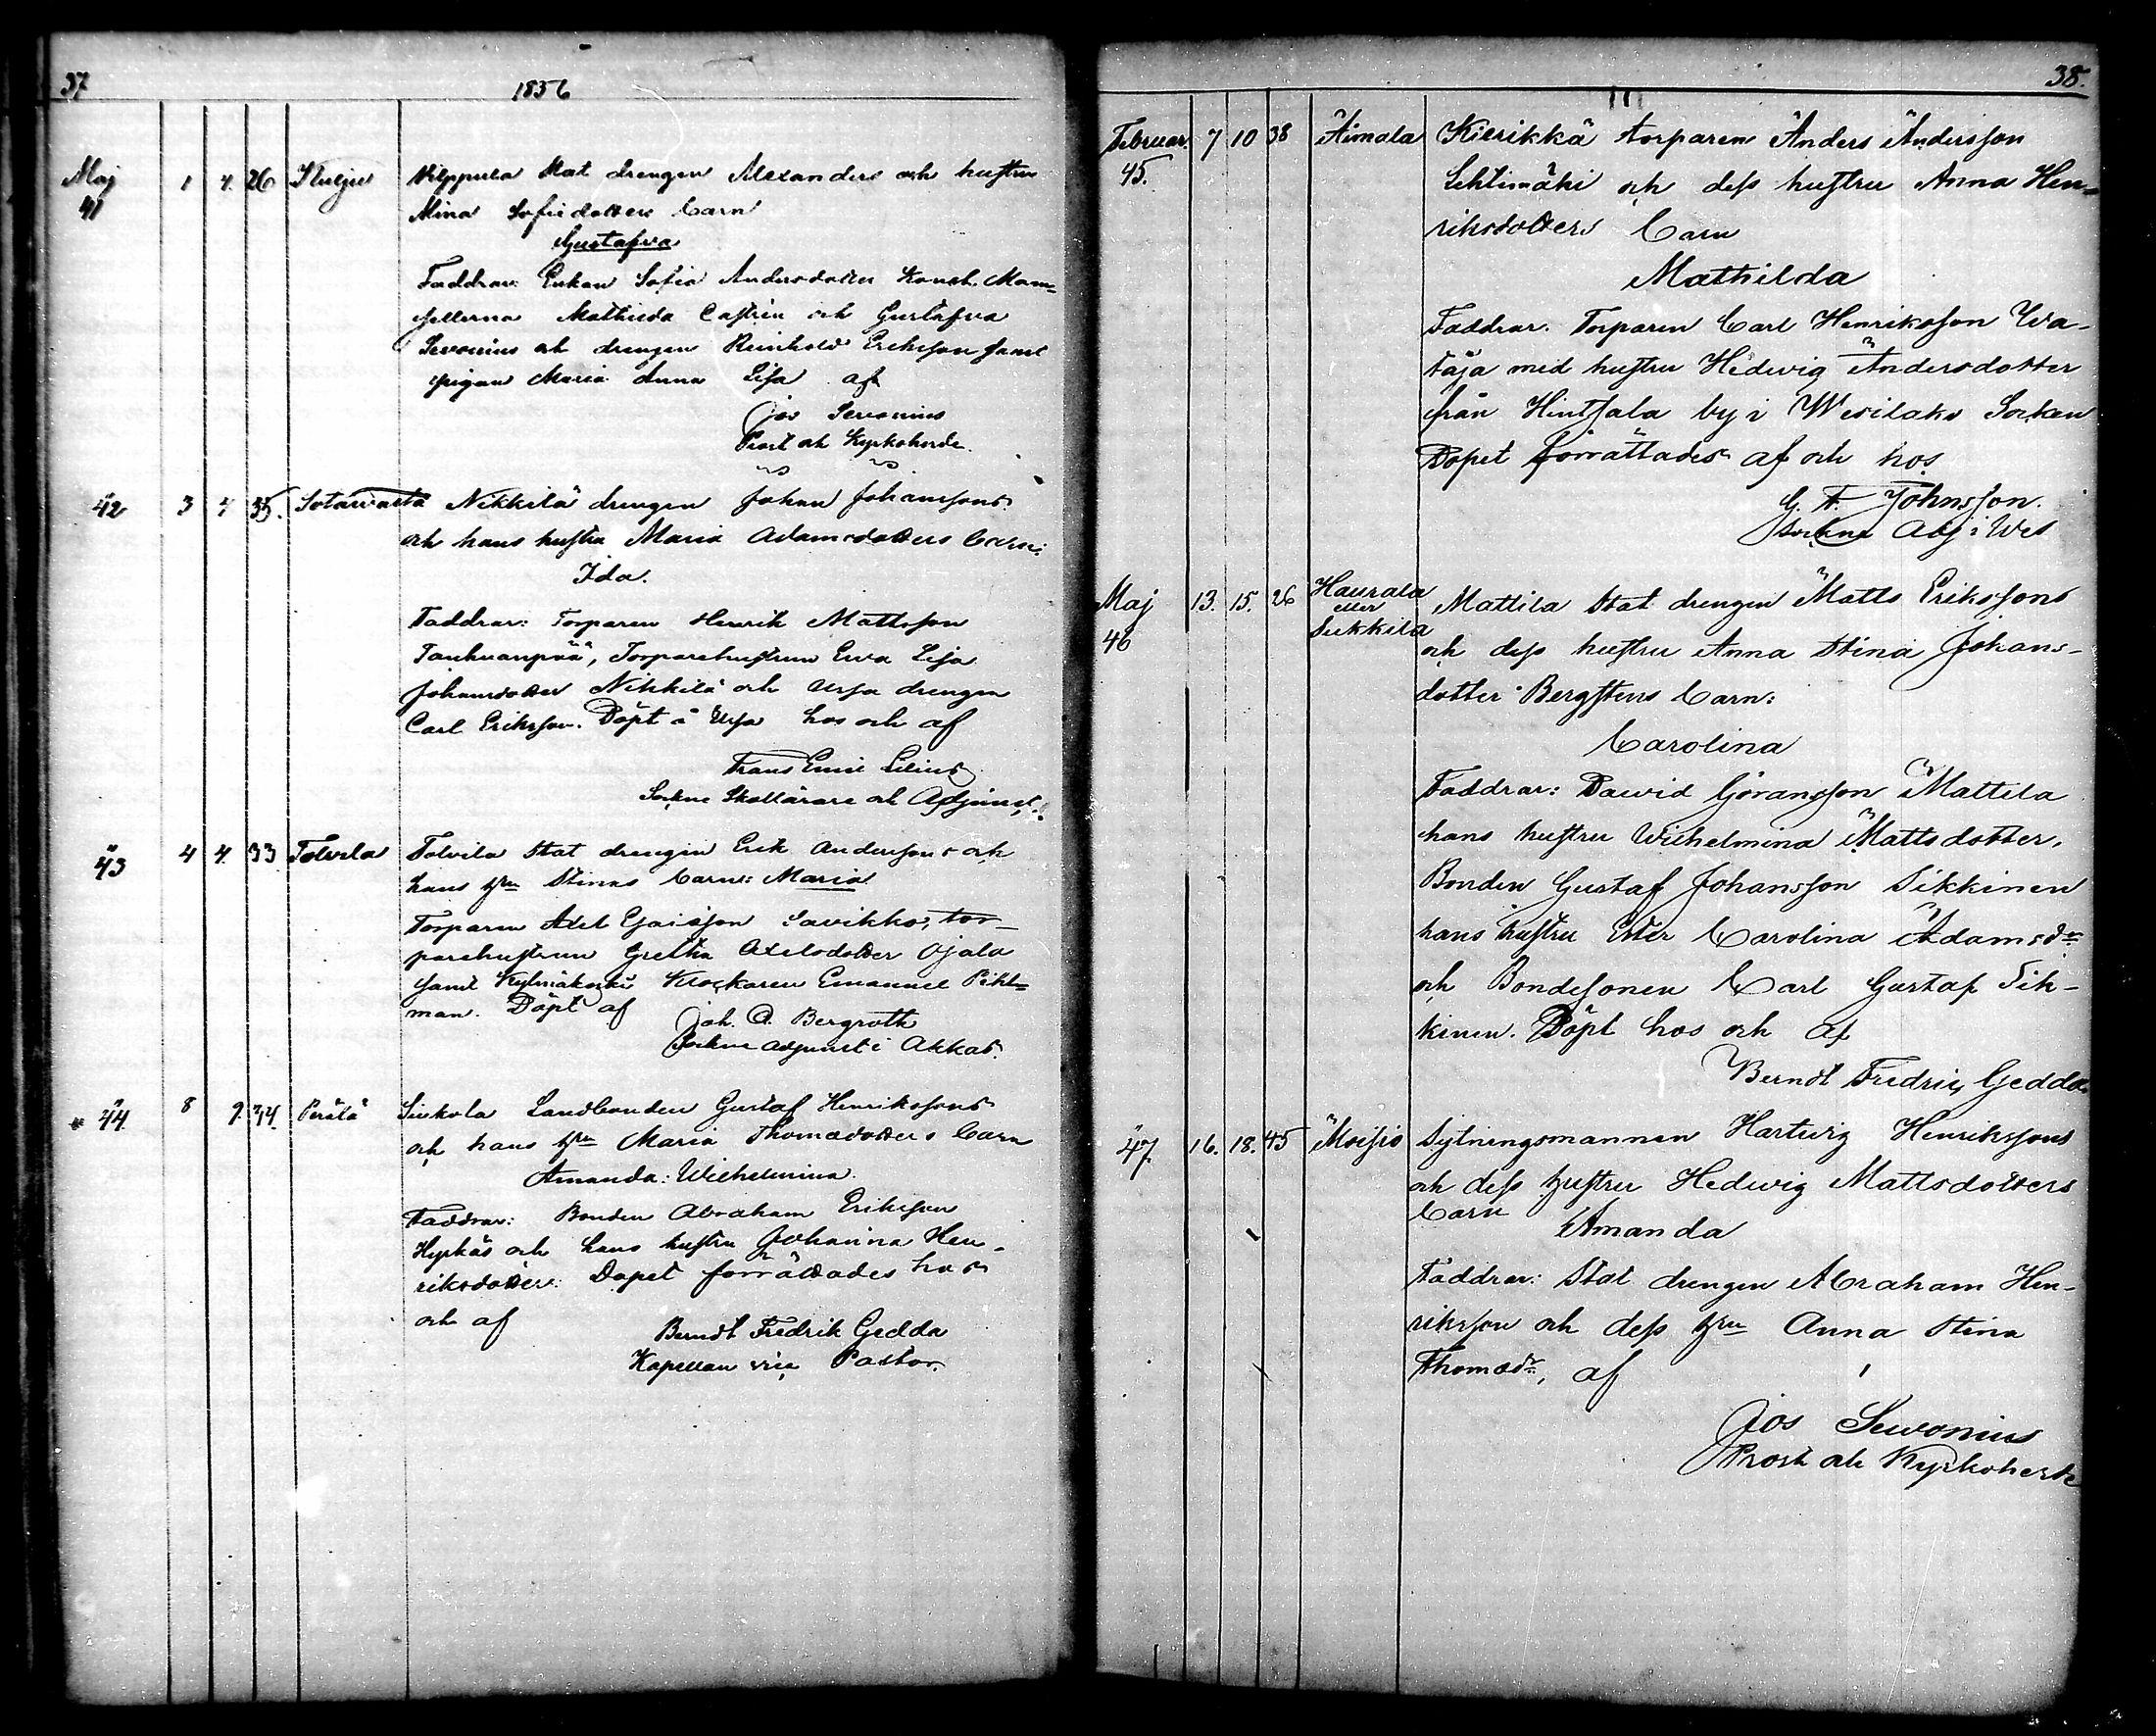 37
1856
Maj 1 4. 26 Kulju Nilppula Stat drengen Alexanders och hustrus
41 Mina Sofiedotters barn
Gustafva
Faddrar: Enkan Sofia Andersdotter Konst. Mam=
sellerna Mathilda Castrén och Gustafva
Sevonius och drengen Reinhold Eriksson samt
pigan Maria Anna Lisa af
Jos Sevonius
Prost och Kyrkoherde.
42 3 4 35. Sotavalta Nikkilä drengen Johan Johanssons
och hans hustru Maria Adamsdotters barn:
Ida.
Faddrar: Torparen Henrik Mattsson
Tanhuanpää, Torparehustrun Eva Lisa
Johansdotter Nikkilä och Ursa drengen
Carl Eriksson. Döpt å Ursa hos och af
Frans Emil Lilius
Sockne Skollärare och Adjunct.
43 4 4. 33 Tolvila Tolvila Stat drengen Erik Anderssons och
hans hru Stinas barn: Maria
Torparen Axel Esaisson Savikko, tor-
parehustrun Gretha Axelsdotter Ojala
samt Kylmäkoski Klockaren Emanuel Pihl=
man. Döpt af
Joh. A. Bergroth
Sockne adjunct i Akkas.
44. 8 9 34. Perälä Siukola Landbonden Gustaf Henrikssons
och hans hru Maria Thomasdotters barn
Amanda: Wilhelmina.
Faddrar: Bonden Abraham Eriksson
Hyrkäs och hans hustru Johanna Hen-
riksdotter. Dopet förrättades hos
och af
Berndt Fredrik Gedda
Kapellan vice Pastor.
38.
Februar. 7 10 38 Äimälä Kierikkä torparen Anders Andersson
45. Lehtimäki och dess hustru Anna Hen=
riksdotters barn
Mathilda
Faddrar. Torparen Carl Henriksson Wa-
taja med hustru Hedwig Andersdotter
från Hintsala by i Wesilaks Socken
Dopet förrättades af och hos
G. F. Johnsson.
Sockne Adj i Wes
Maj 13. 15. 26 Haurala Mattila Stat drengen Matts Erikssons
eller
46 Sukkila
och dess hustru Anna Stina Johans-
dotter Bergstens barn:
Carolina
Faddrar: David Göransson Mattila
hans hustru Wilhelmina Mattsdotter,
Bonden Gustaf Johansson Sikkinen
hans hustru Ester Carolina Adamsdr
och Bondesonen Carl Gustaf Sik-
kinen. Döpt hos och af
Berndt Fredric Gedda
47 16. 18. 45 Moisio Sytningsmannen Hartvig Henrikssons
och dess hustru Hedwig Mattsdotters
barn
Amanda
Faddrar: Stat drengen Abraham Hen-
riksson och dess hru Anna Stina
Thomasdr, af
Jos Sevonius
Prost och Kyrkoherde